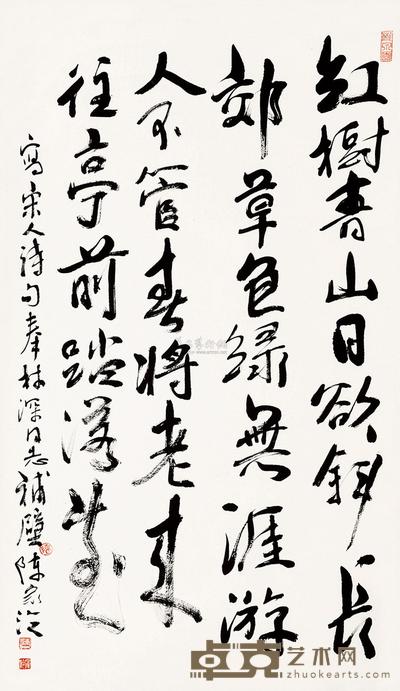 红树青山日欲斜长
郊草色绿无涯游
人不管春将老来
往亭前踏落花
写宋人诗句奉林深同志补壁陈家泛
卓克艺术网
www.zhuokearts.com